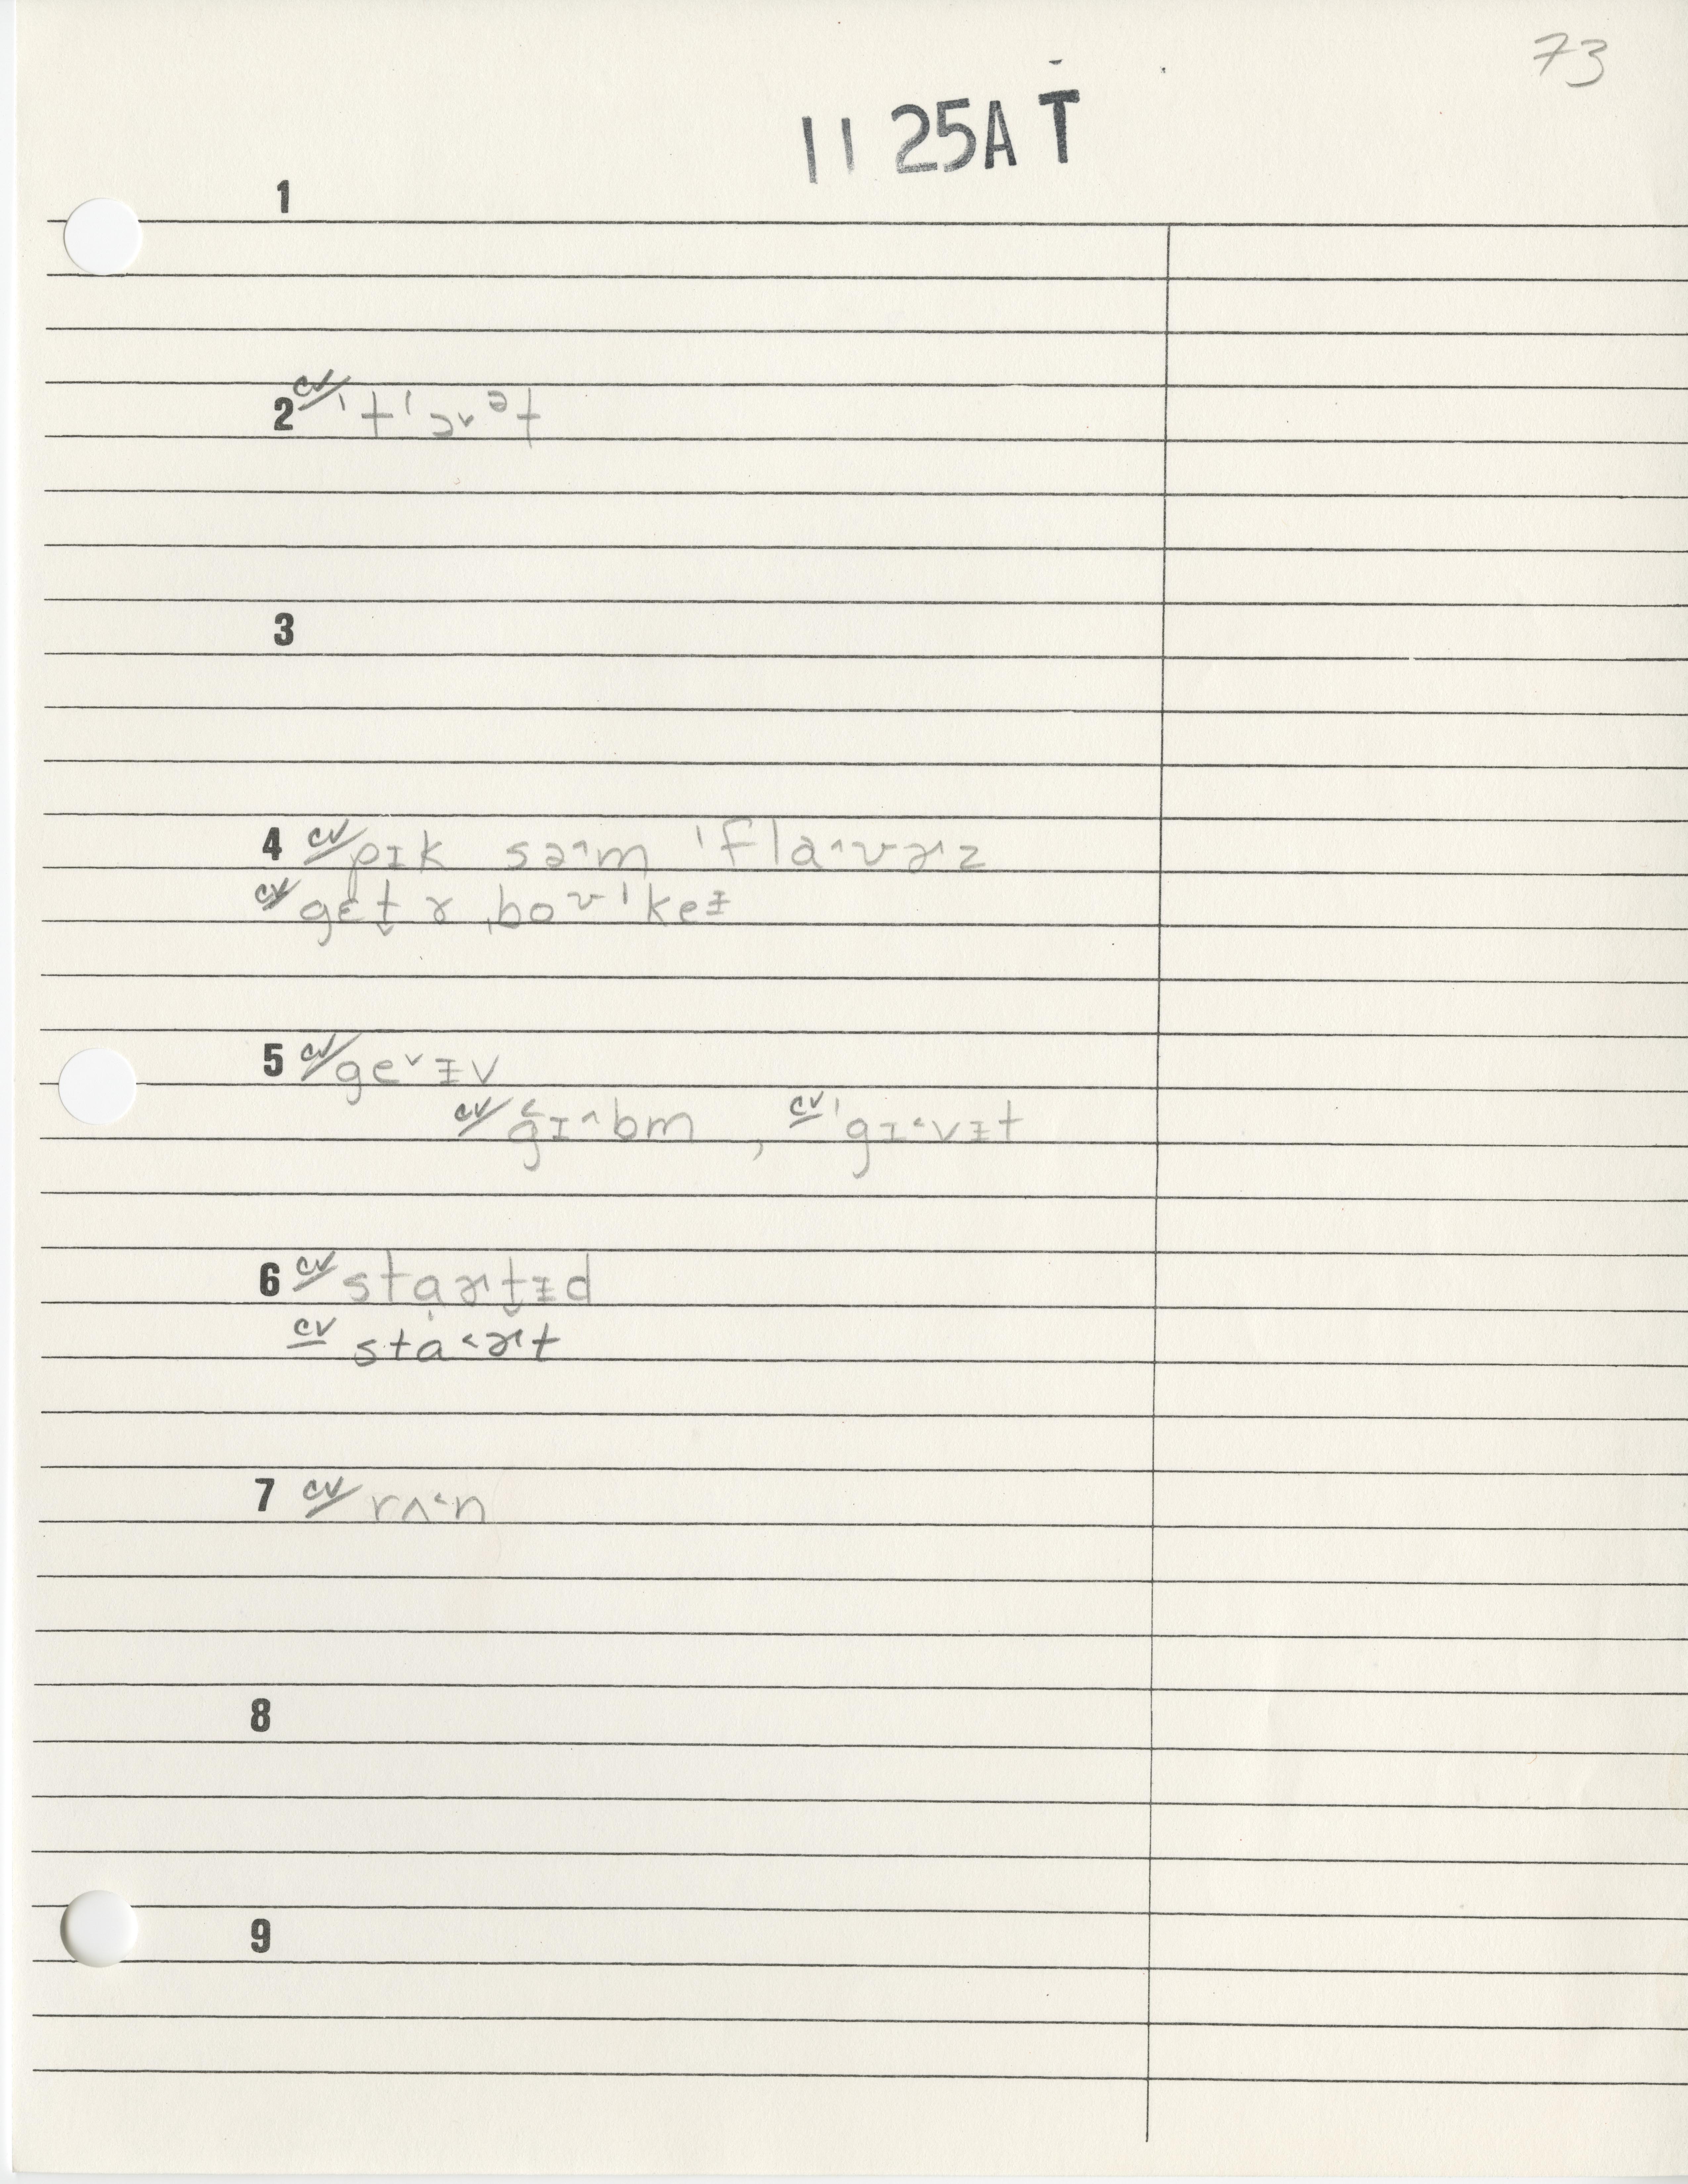 73
11 25A T
1
2 cv/ ˈtˈɔ˅ət
3
4 cv/ pɪk sə˄m ˈfla˄ʊ˄ɚz
cv/ gɛt̬ ɤ ˌboʊˈkeɨ
5 cv/ ge˅ɨv
cv/ gɪ˄bm , cv ˈgɪ˂vɨt
6 cv/ stɑɚt̬ɨd
cv sta˂ɚt
7 cv/ rʌ˂n
8
9